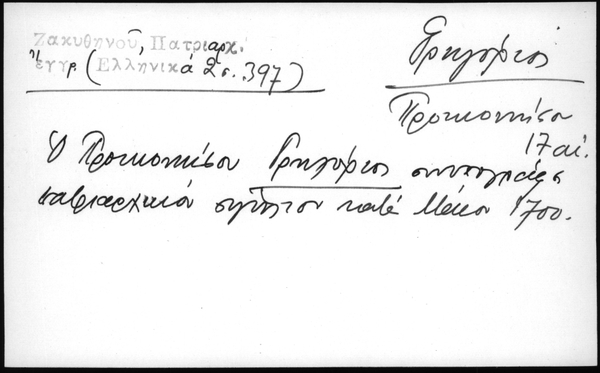 Ζακυθηνού, Πατριαρχ.
έγγρ. (Ελληνικά 2 σ. 397)
Γρηγόριος
Προικοννήσου
17 αι.
Ο Προικοννήσου Γρηγόριος συνυπογράφει
πατριαρχικόν σιγίλλιον κατά Μάιον 1700.